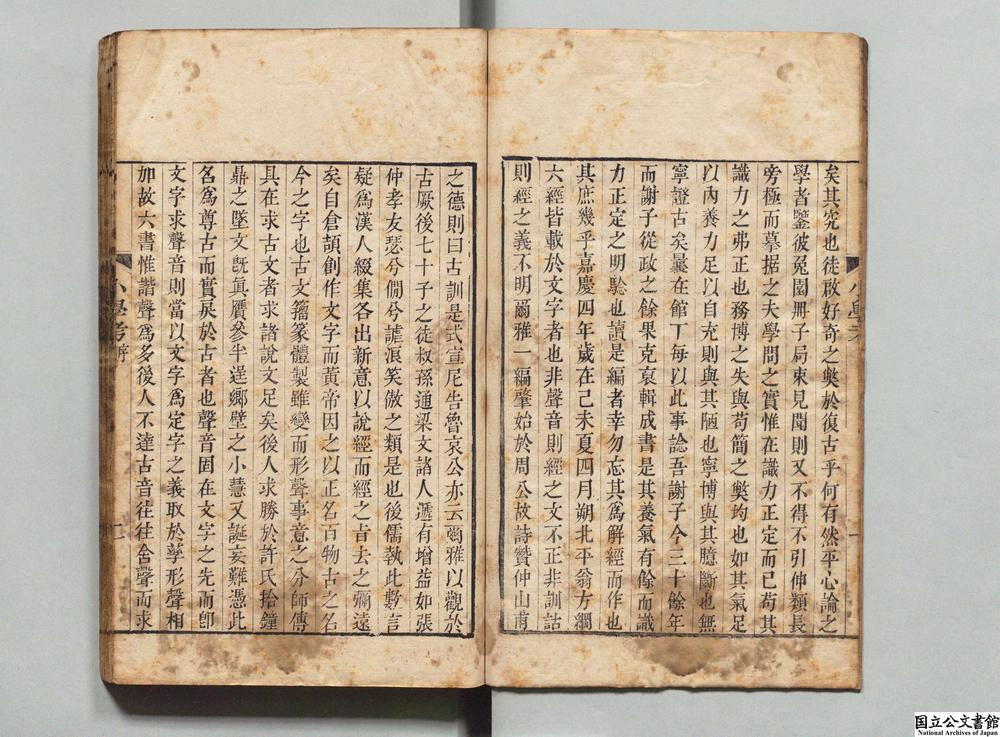 矣其究也徒啟好奇之獘於復古乎何有然平心論之
學者鑒彼兔園冊子局束見聞則又不得不引伸類長
旁極而摹据之夫學問之實惟在識力正定而已苟其
識力之弗正也務博之失與苟簡之獘均也如其氣足
以內養力足以自充則與其陋也寧博與其臆斷也無
寧證古矣曩在館丁每以此事諗吾謝子今三十餘年
而謝子從政之餘果克裒輯成書是其養氣有餘而識
力正定之明驗也讀是編者幸勿忘其為解經而作也
其庶幾乎嘉慶四年歲在己未夏四月朔北平翁方綱
六經皆載於文字者也非聲音則經之文不正非訓詁
則經之義不明爾雅一編肇始於周公故詩贊仲山甫
小學考
一
之德則曰古訓是式宣尼告魯哀公亦云爾雅以觀於
古厥後七十子之徒叔孫通梁文諸人遞有增益如張
仲孝友瑟兮僩兮謔浪笑傲之類是也後儒執此數言
疑為漢人綴集各出新意以說經而經之旨去之彌遠
矣自倉頡創作文字而黃帝因之以正名百物古之名
今之字也古文籀篆體製雖變而形聲事意之分師傳
具在求古文者求諸說文足矣後人求勝於許氏拾鐘
鼎之墜文既真贋參半逞鄉壁之小慧又誕妄難憑此
名為尊古而實戾於古者也聲音固在文字之先而卽
文字求聲音則當以文字為定字之義取於孳形聲相
加故六書惟諧聲為多後人不達古音往往舍聲而求
小學考 序
二
国立公文書館
National Archives of Japan